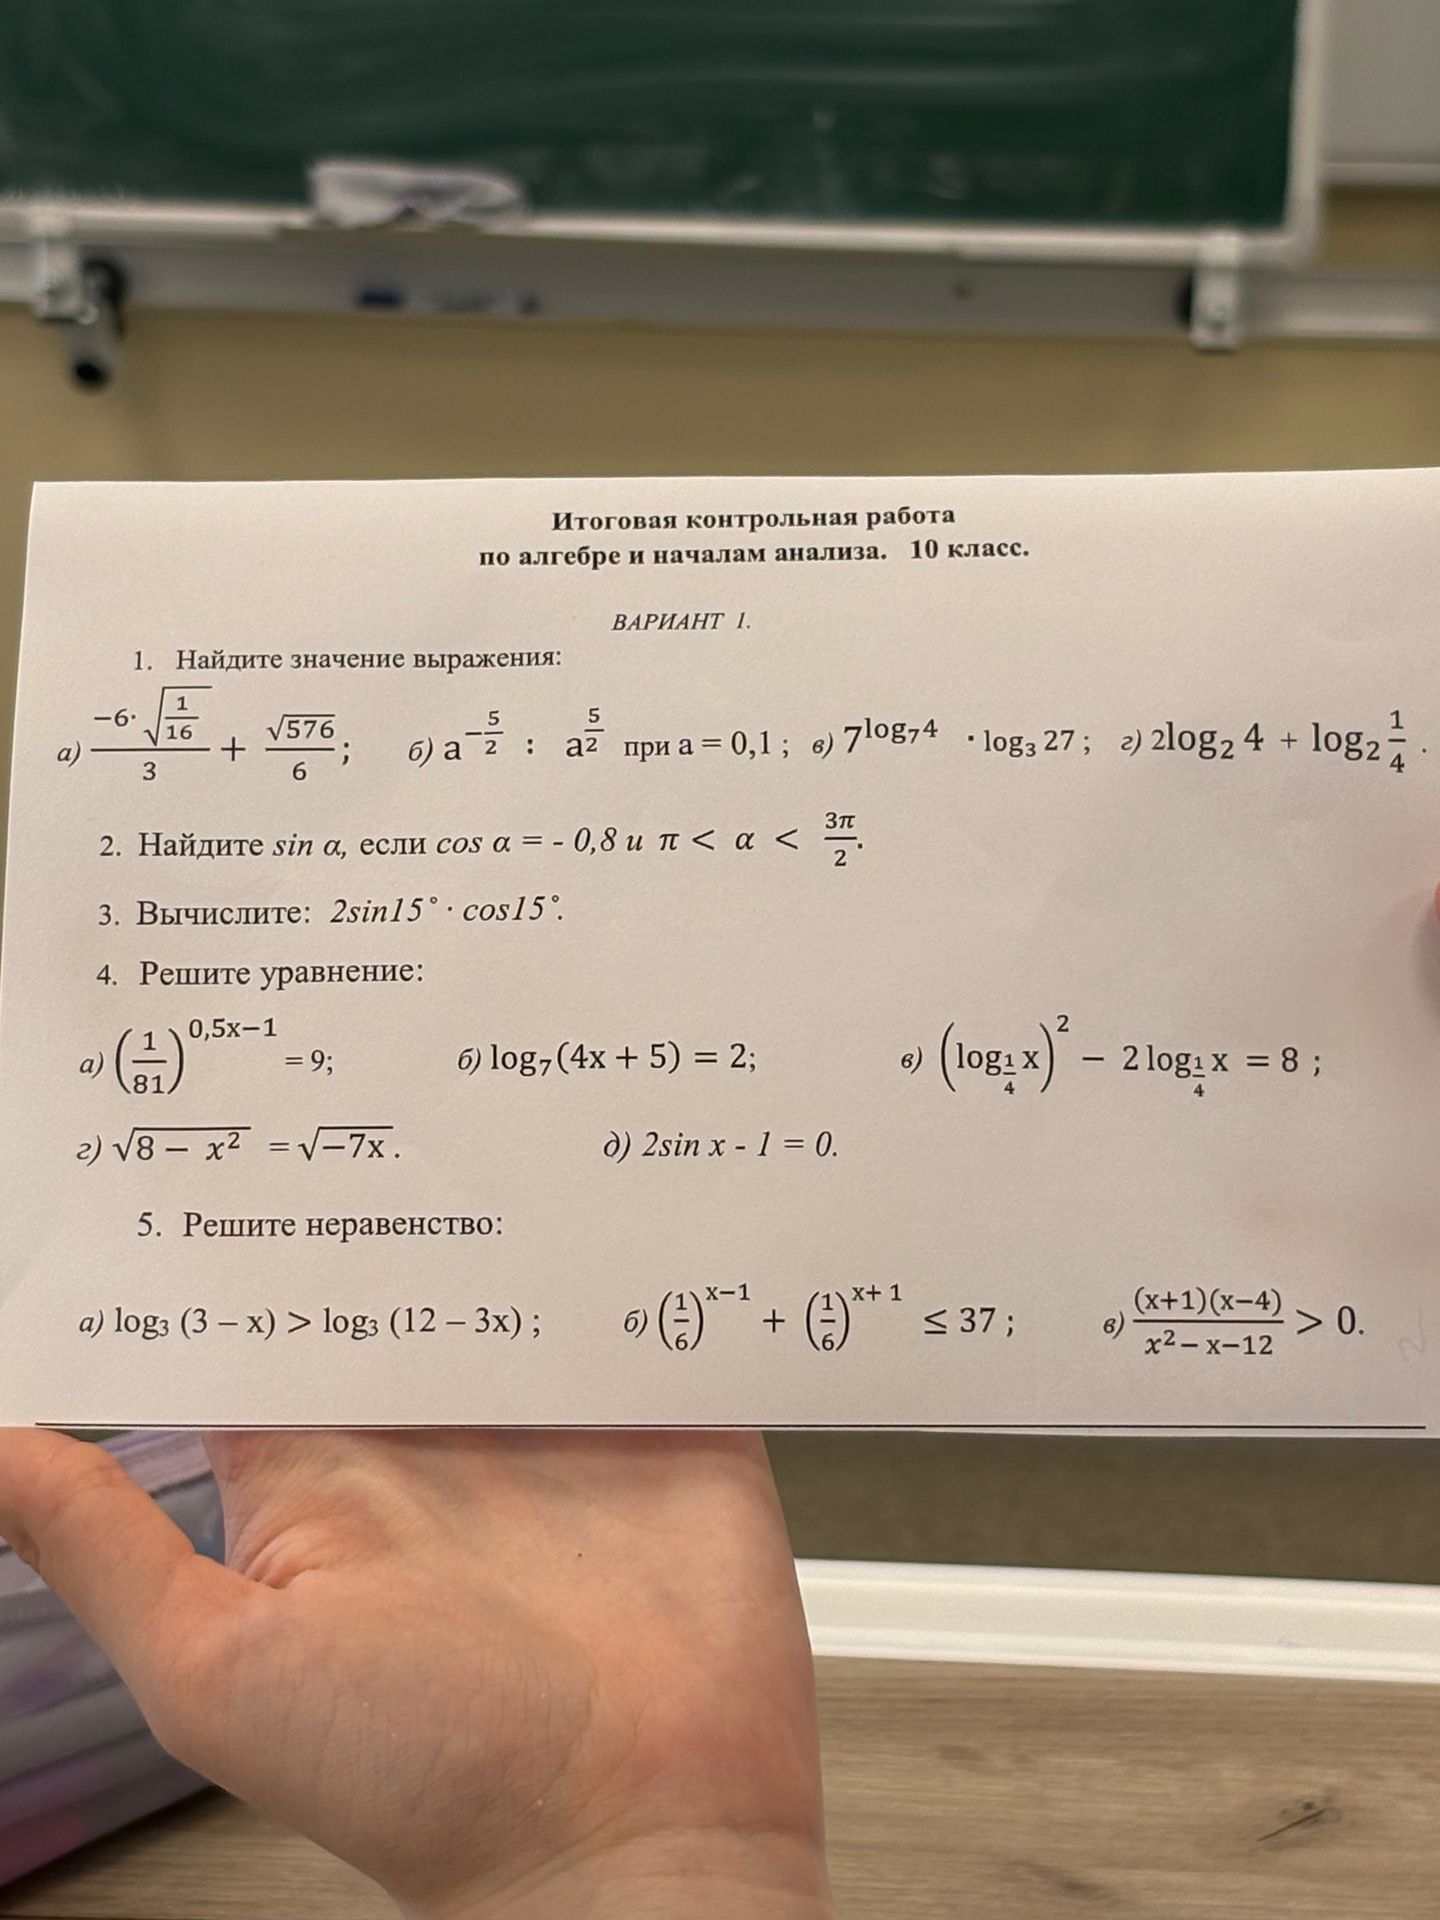 Итоговая контрольная работа
по алгебре и началам анализа. 10 класс.
ВАРИАНТ 1.
1. Найдите значение выражения:
а) \frac{-6 \cdot \sqrt{\frac{1}{16}}}{3} + \frac{\sqrt{576}}{6}; б) a^{-\frac{5}{2}} : a^{\frac{5}{2}} при a = 0,1 ; в) 7^{log_7 4} · log_3 27 ; г) 2log_2 4 + log_2 \frac{1}{4} .
2. Найдите sin α, если cos α = - 0,8 и π < α < \frac{3π}{2}.
3. Вычислите: 2sin15° · cos15°.
4. Решите уравнение:
а) (\frac{1}{81})^{0,5x−1} = 9; б) log_7(4x + 5) = 2; в) (log_{\frac{1}{4}} x)^2 − 2 log_{\frac{1}{4}} x = 8 ;
г) \sqrt{8 − x^2} = \sqrt{−7x}. д) 2sin x - 1 = 0.
5. Решите неравенство:
а) log_3 (3 – x) > log_3 (12 – 3x) ; б) (\frac{1}{6})^{x−1} + (\frac{1}{6})^{x+ 1} ≤ 37 ; в) \frac{(x+1)(x−4)}{x^2− x−12} > 0.